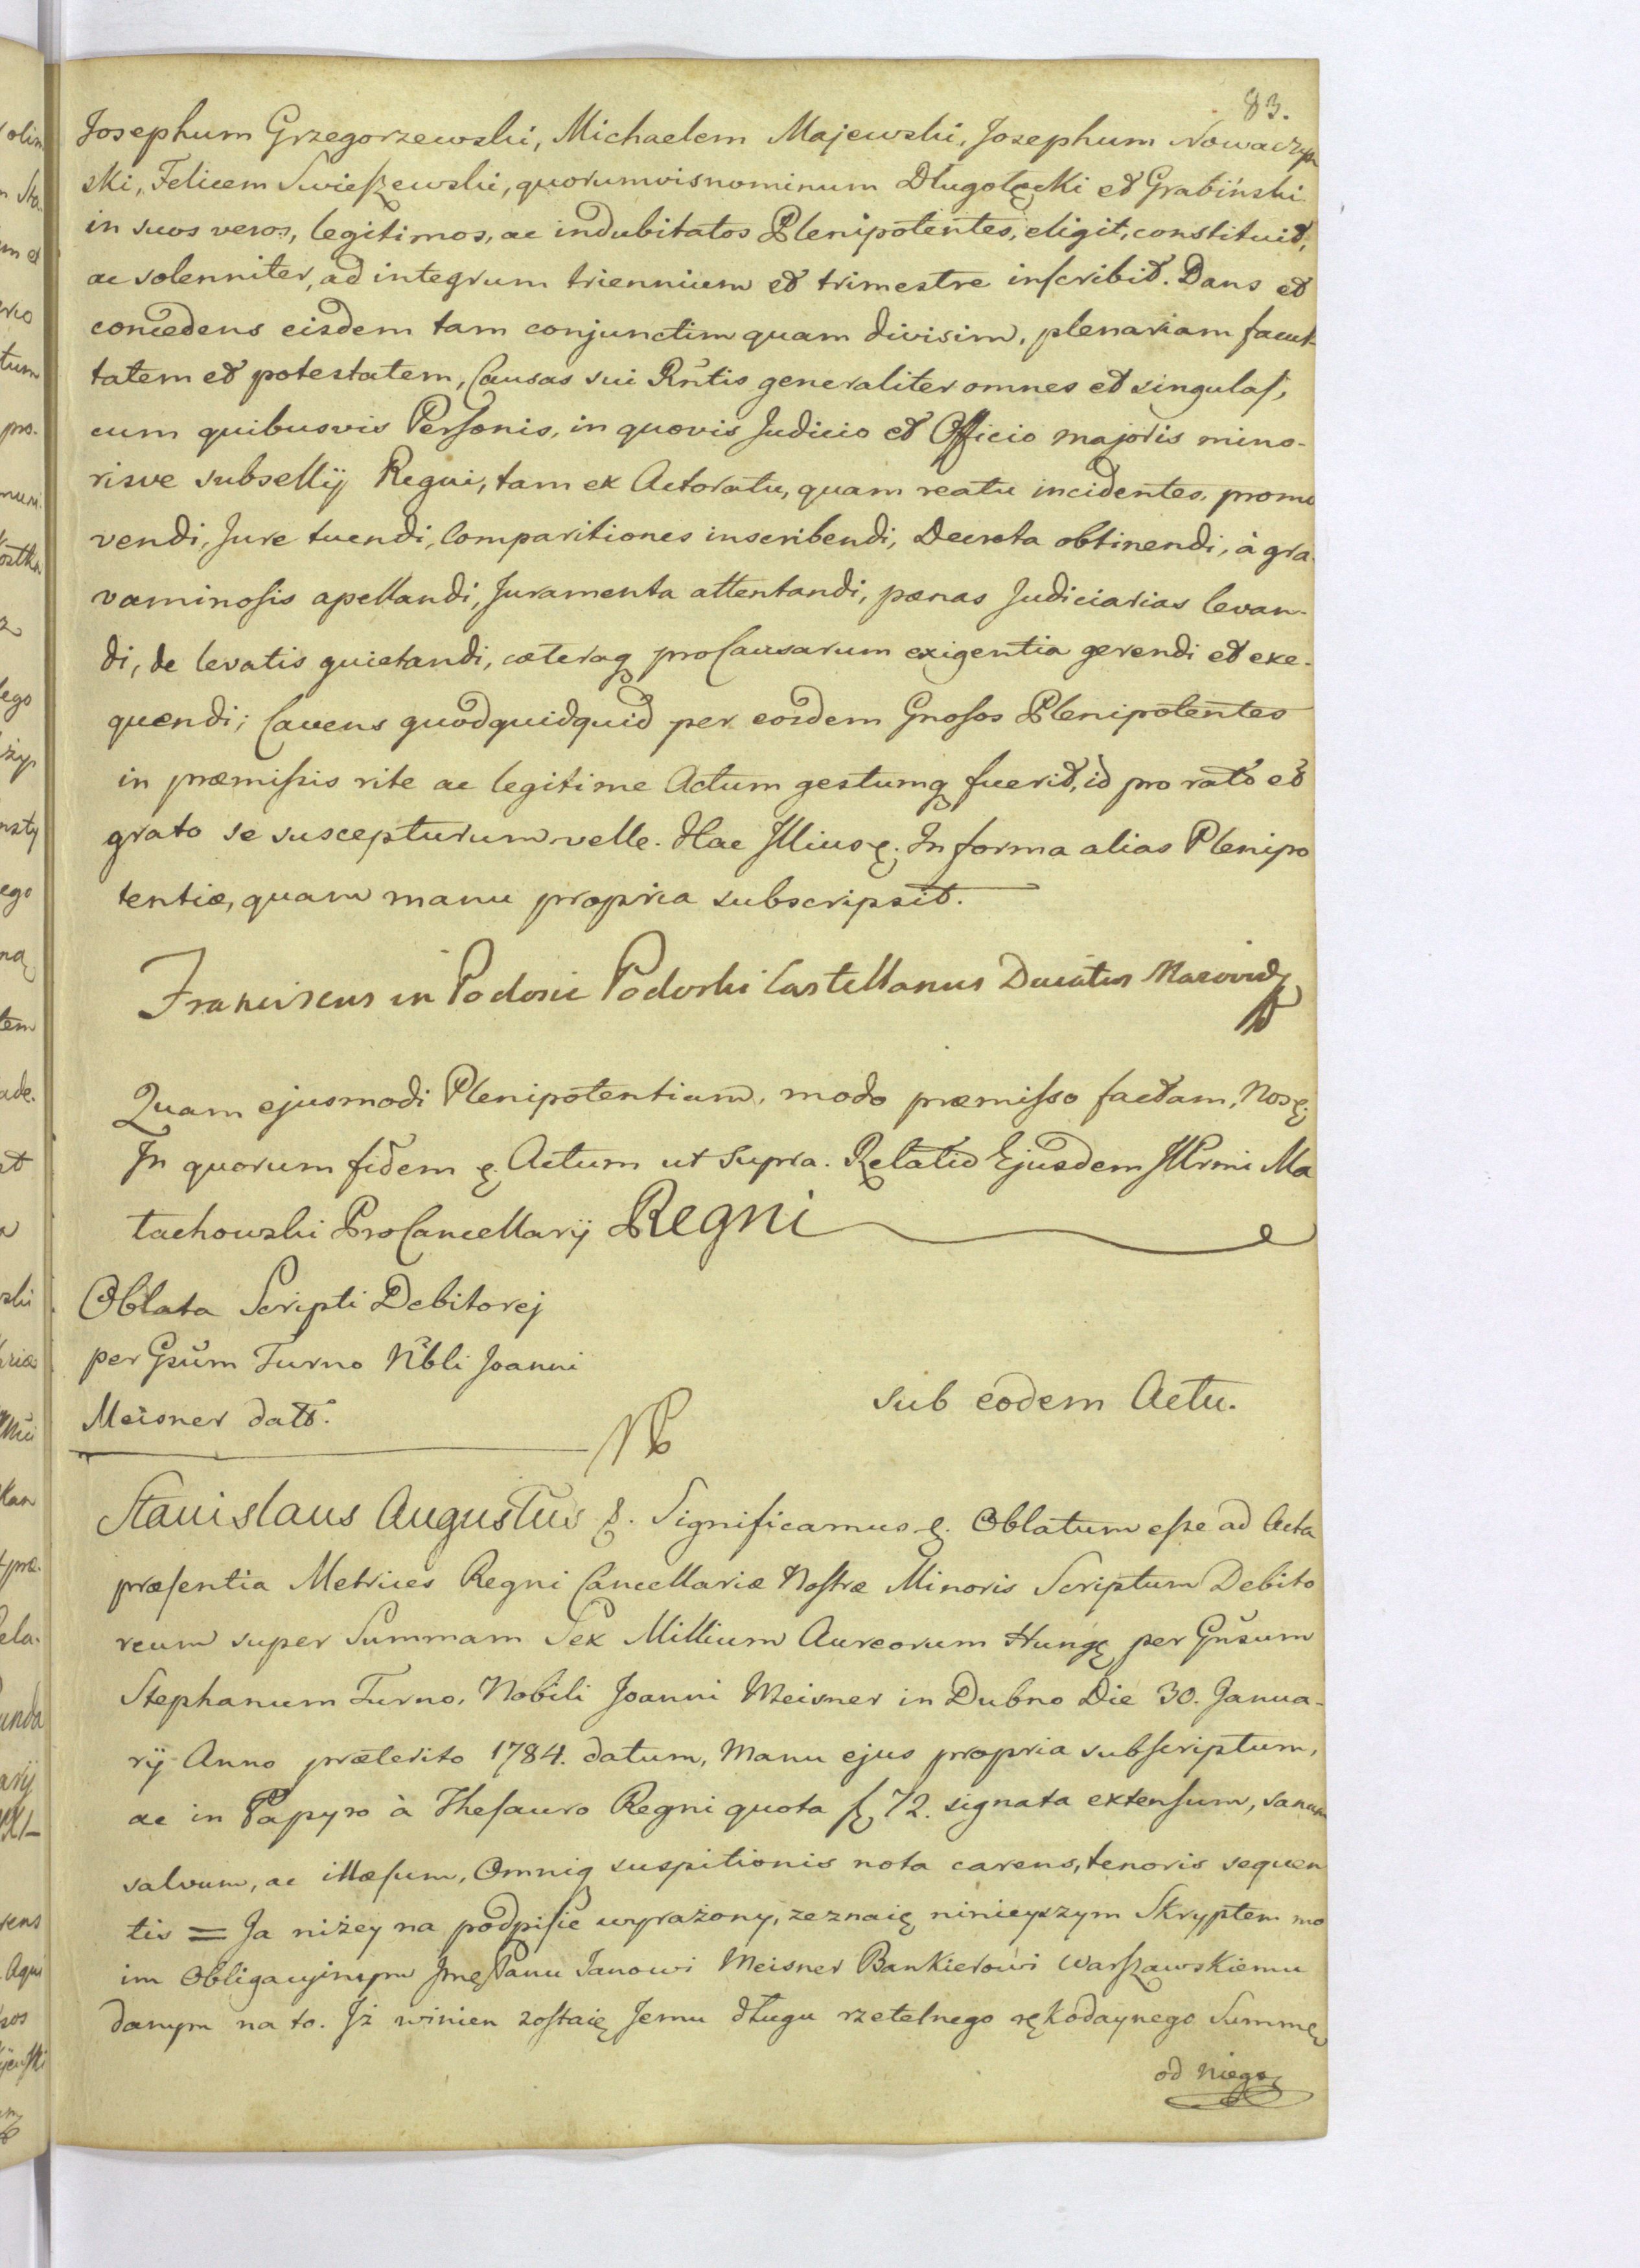 83.
Josephum Grzegorzewski, Michaelem Majewski, Josephum Nowaczyn
ski, Felicem Swieszewski, quorumvis nominum Długołęcki et Grabiński
in suos veros, legitimos, ac indubitatos Plenipotentes, eligit, constituit,
ac solenniter, ad integrum triennium et trimestre inscribit. Dans et
concedens eisdem tam conjunctim quam divisim, plenariam facul-
tatem et potestatem, Causas sui Rntis generaliter omnes et singulas,
cum quibusvis Personis, in quovis Judicio et Officio majoris mino-
risve subsellij Regni, tam ex Actoratu, quam reatu incidentes, promo
vendi, Jure tuendi, Comparitiones inscribendi, Decreta obtinendi, à gra-
vaminosis apellandi, Juramenta attentandi, pænas Judiciarias levan-
di, de levatis quietandi, cæteraq pro Causarum exigentia gerendi et exe-
quendi; Cavens quod quidquid per eosdem Gnosos Plenipotentes
in præmissis rite ac legitime Actum gestumq fuerit, id pro rato et
grato se suscepturum velle. Hac Illius &. In forma alias Plenipo
tentiæ, quam manu propria subscripsit.
Franciscus in Podosie Podoski Castellanus Ducatus Masoviæ
Quam ejusmodi Plenipotentiam, modo præmisso factam, Nos &.
In quorum fidem &. Actum ut supra. Relatio Ejusdem Illrmi Ma
łachowski ProCancellarij Regni
Oblata Scripti Debitorej
per Gsum Turno Nbli Joanni
Meisner datt.
sub eodem Actu.
Stanislaus Augustus &. Significamus &. Oblatum esse ad Acta
præsentia Metrices Regni Cancellariæ Nostræ Minoris Scriptum Debito
reum super Summam Sex Millium Aureorum Hung per Gnsum
Stephanum Turno, Nobili Joanni Meisner in Dubno Die 30. Janua-
rij Anno præterito 1784. datum, Manu ejus propria subscriptum,
ac in Papyro à Thesauro Regni quota f. 72. signata extensum, sanum
salvum, ac illæsum, Omniq suspitionis nota carens, tenoris sequen
tis = Ja niżey na podpisie wyrażony, zeznaię ninieyszym Skryptem mo
im Obligacyinym Jmę Panu Janowi Meisner Bankierowi Warszawskiemu
danym na to. Jż winien zostaię Jemu długu rzetelnego rękodaynego Summę
od niego